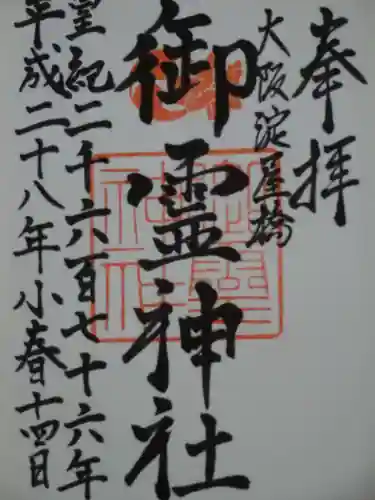 奉拝
大阪淀屋橋
御霊神社
皇紀二千六百七十六年
平成二十八年小春十四日